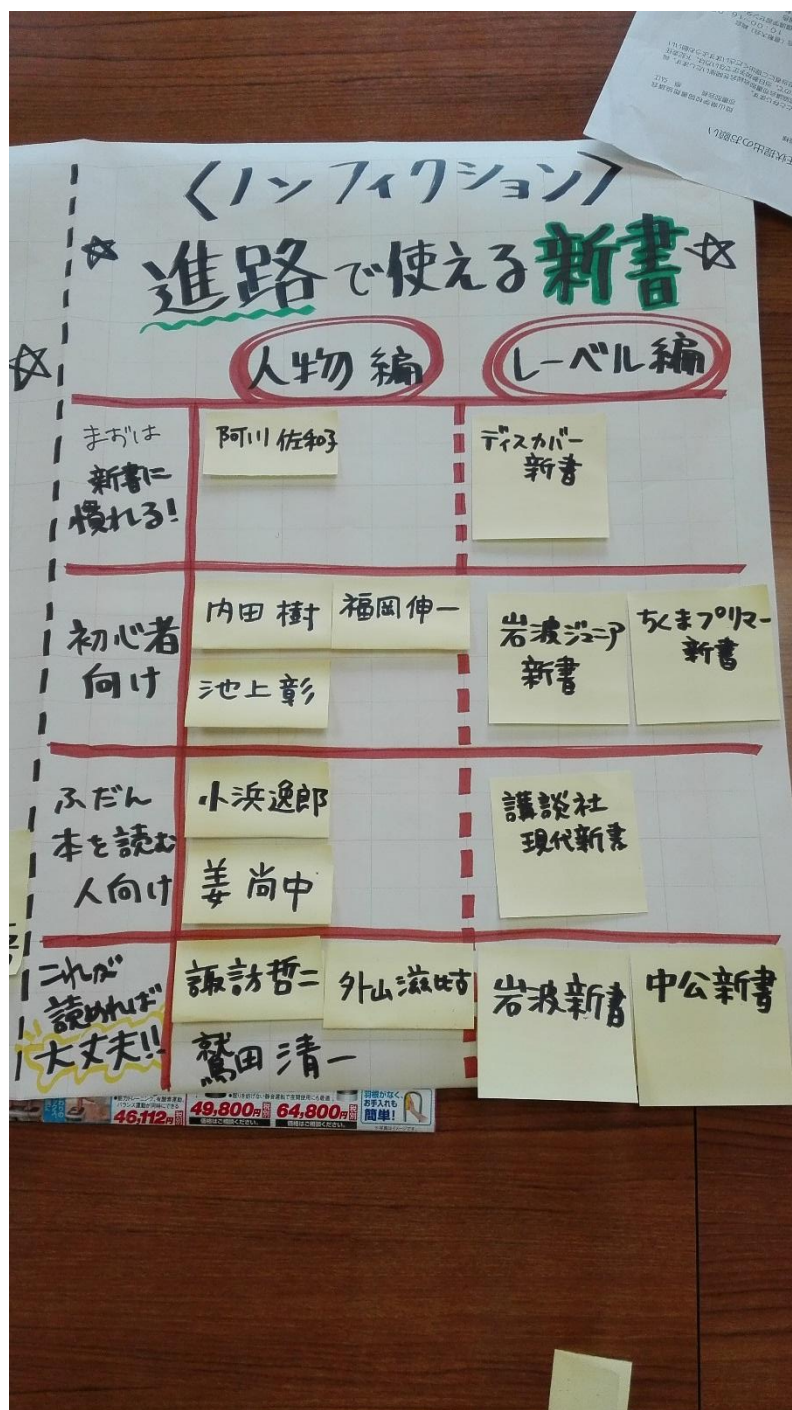 〈ノンフィクション〉
☆進路で使える新書☆
人物編
レーベル編
まずは
新書に
慣れる!
阿川佐和子
ディスカバー
新書
初心者
向け
内田樹
福岡伸一
池上彰
岩波ジュニア
新書
ちくまプリマー
新書
ふだん
本を読む
人向け
小浜逸郎
姜尚中
講談社
現代新書
これが
読めれば
大丈夫!!
諏訪哲二
外山滋比古
鷲田清一
岩波新書
中公新書
46,112円
49,800円
64,800円
価格はご相談ください。
価格はご相談ください。
羽根がなく、
お手入れも
簡単!